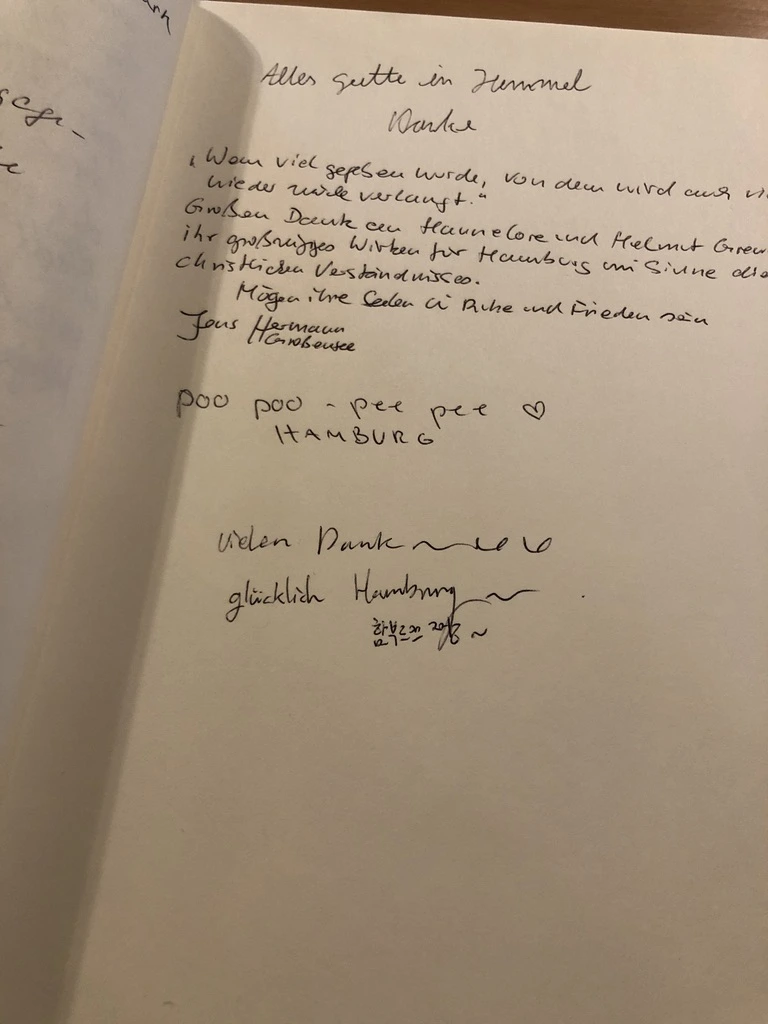 Alles gutte in Himmel
Danke
"Wem viel gegeben wurde, von dem wird auch
wieder verlangt."
Großen Dank an Hannelore und Helmut Grew
ihr großzügiges Wirken für Hamburg im Sinne
christlichen Verständnisses.
Mögen ihre Seelen in Ruhe und Frieden sein
Jens Hermann
Großensee
poo poo - pee pee ♡
HAMBURG
vielen Dank
glücklich Hamburg ~
함부르크